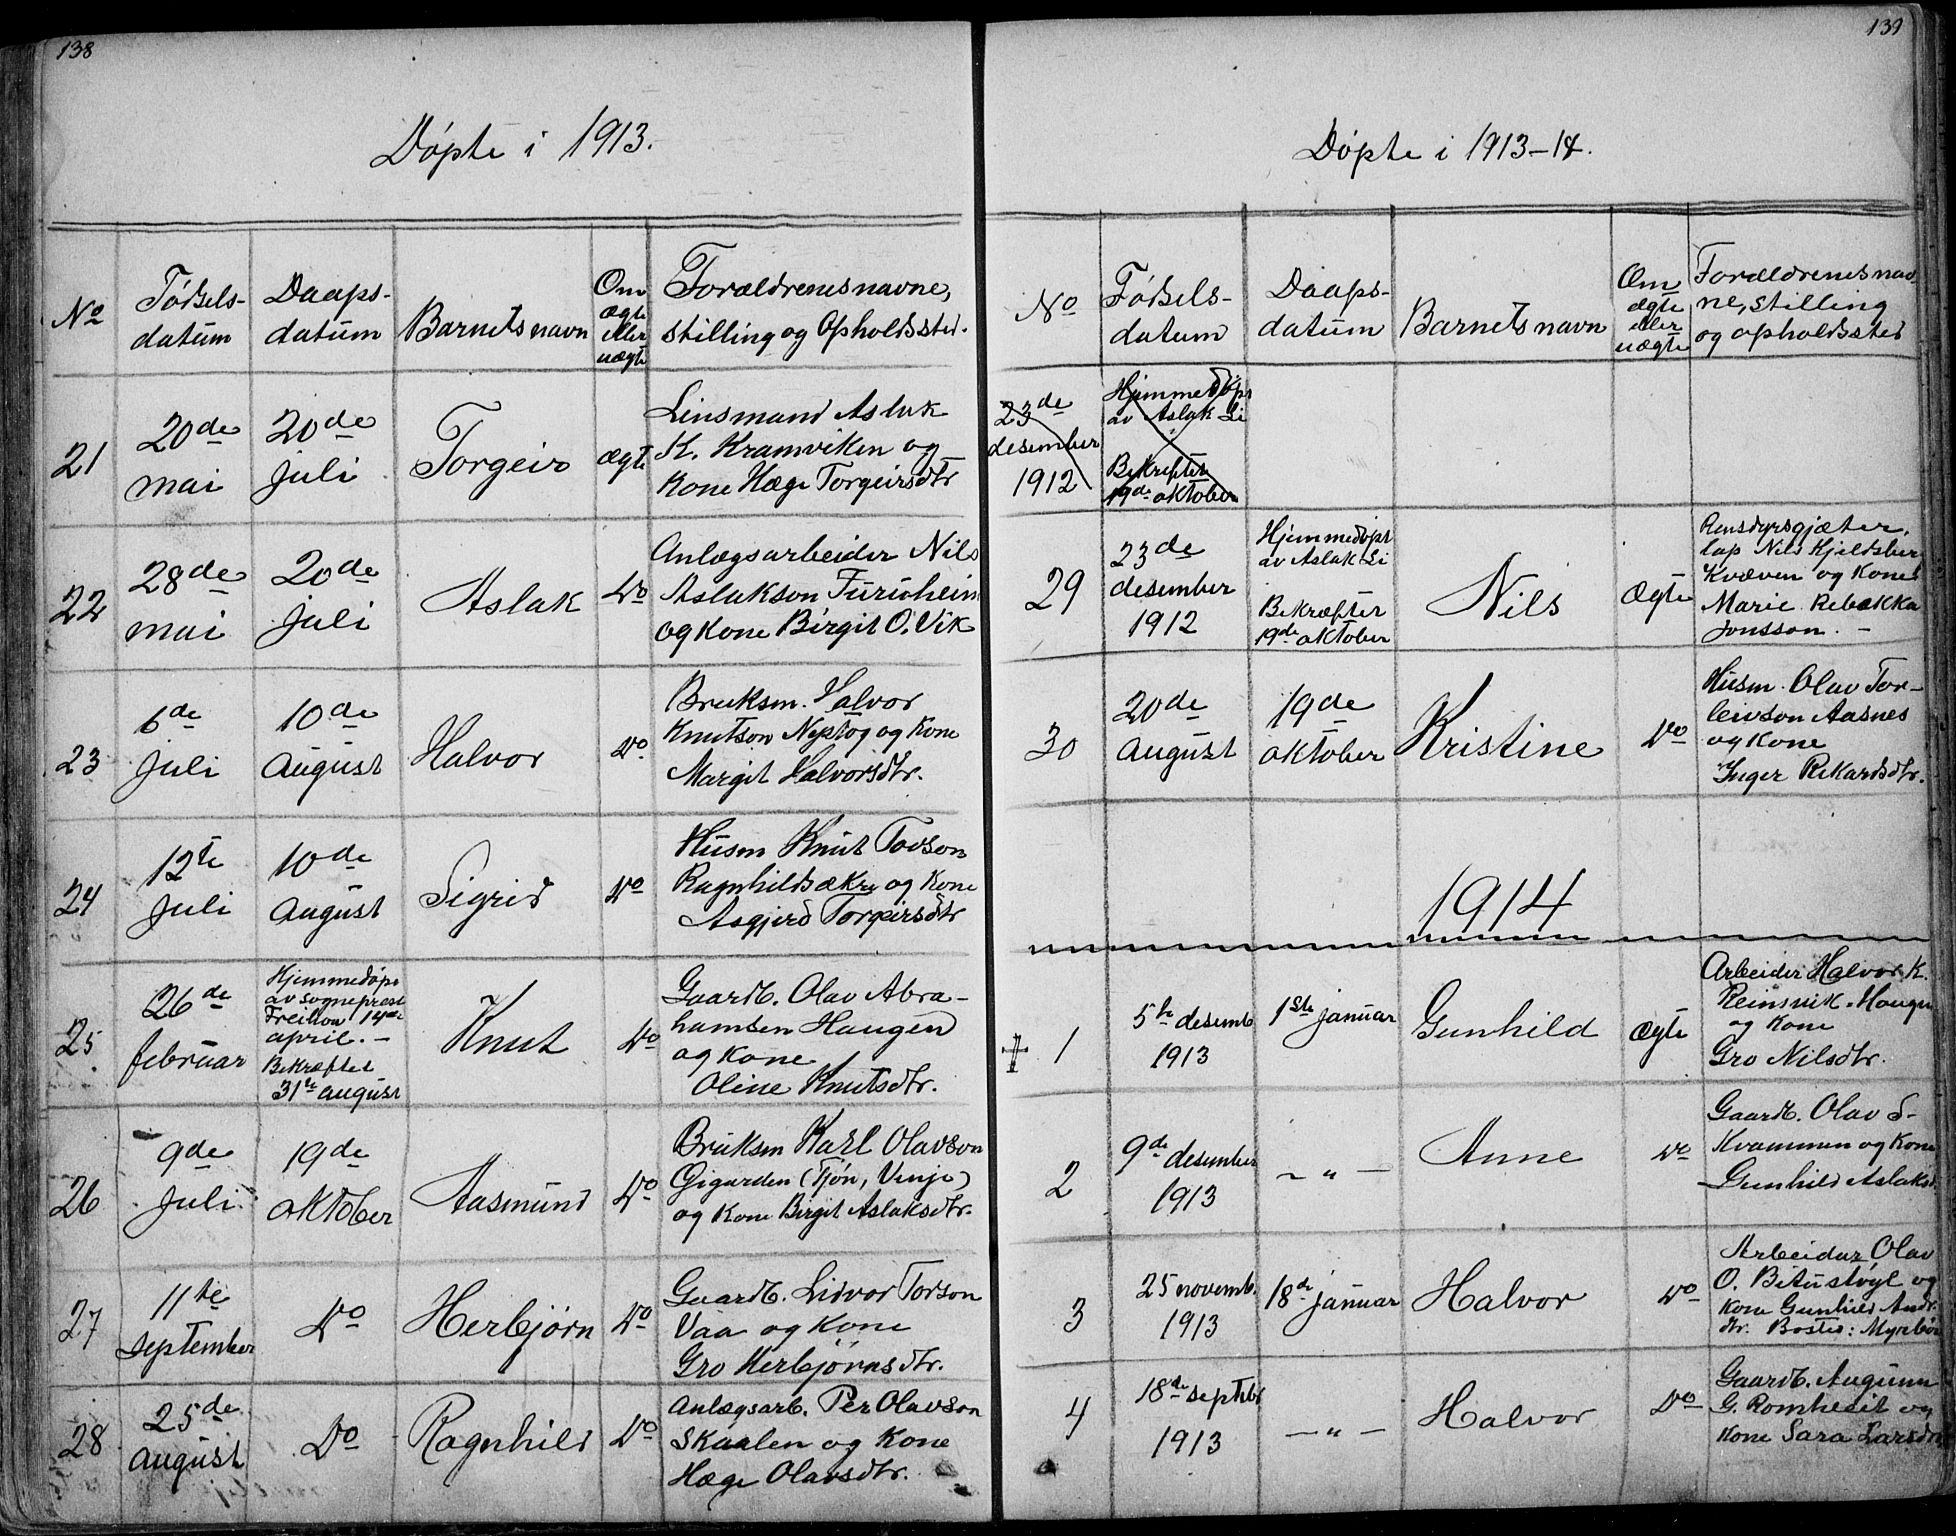 138
Døpte i 1913.
No
Fødsels-
datum
Daaps-
datum
Barnets navn
Om
ægte
eller
uægte
Forældrenes navne,
stilling og Opholdssted.
21
20de
mai
20de
juli
Torgeir
ægte
Linsmand Aslak
K. Kramviken og
Kone Hæge Torgeirsdtr
22
28de
mai
20de
juli
Aslak
Do
Anlægsarbeider Nils
Aslakson Furuheim
og Kone Birgit O. Vik
23
6de
juli
10de
August
Halvor
Do
Bruksm. Halvor
Knutson Nystog og Kone
Margit Halvorsdtr.
24
12te
juli
10de
August
Sigrid
Do
Husm Knut Tovson
Ragnhildsækre og Kone
Asgjerd Torgeirsdtr
25
26de
februar
Hjemmedøpt
av sogneprest
14de
april. -
Bekræftet
31te august
Knut
Do
Gaardb. Olav Abra-
hamsen Haugen
og Kone
Oline Knutsdtr.
26
9de
juli
19de
oktober
Aasmund
Do
Bruksm Karl Olavson
Gigarden (Tjøn, Vinje)
og Kone Birgit Aslaksdtr.
27
11te
september
Do
Herbjørn
Do
Gaardb. Lidvor Torson
Vaa og Kone
Gro Herbjørnsdtr.
28
25de
August
Do
Ragnhild
Do
Anlægsarb. Per Olavson
Skaalen og Kone
Hæge Olavsdtr.
139
Døpte i 1913-14.
No
Fødsels-
datum
Daaps-
datum
Barnets navn
Om
ægte
eller
uægte
Forældrenes nav-
ne, stilling
og opholdssted
23de
desember
1912
Hjemmedøpt
av Aslak Li
Bekræftet
19de oktober
29
23de
desember
1912
Hjemmedøpt
av Aslak Li
Bekræftet
19de oktober
Nils
Ægte
Rensdyrsgjæter,
lap Nils Kjeldsberg
Kvæven og Kone
Marie Rebekka
Jonsson. -
30
20de
August
19de
oktober
Kristine
Do
Husm. Olav Tor-
leivson Aasnes
og Kone
Inger Rikardsdtr.
1914
1
5te desemb
1913
1ste januar
Gunhild
Ægte
Arbeider Halvor K.
Haugen
og Kone
Gro Nilsdtr.
2
9de desember
1913
- " -
Anne
Do
Gaardb. Olav S-
Kvammen og Kone
Gunhild Aslaksd.
3
25 novemb.
1913
18de januar
Halvor
Do
Arbeider Olav
O. Bitustøyl og
Kone Gunhild Andr.
dtr. Bosted: Myrbø
4
18de septbr
1913
- " -
Halvor
Do
Gaardb. Augunn
G. Romheset og
Kone Sara Larsdtr